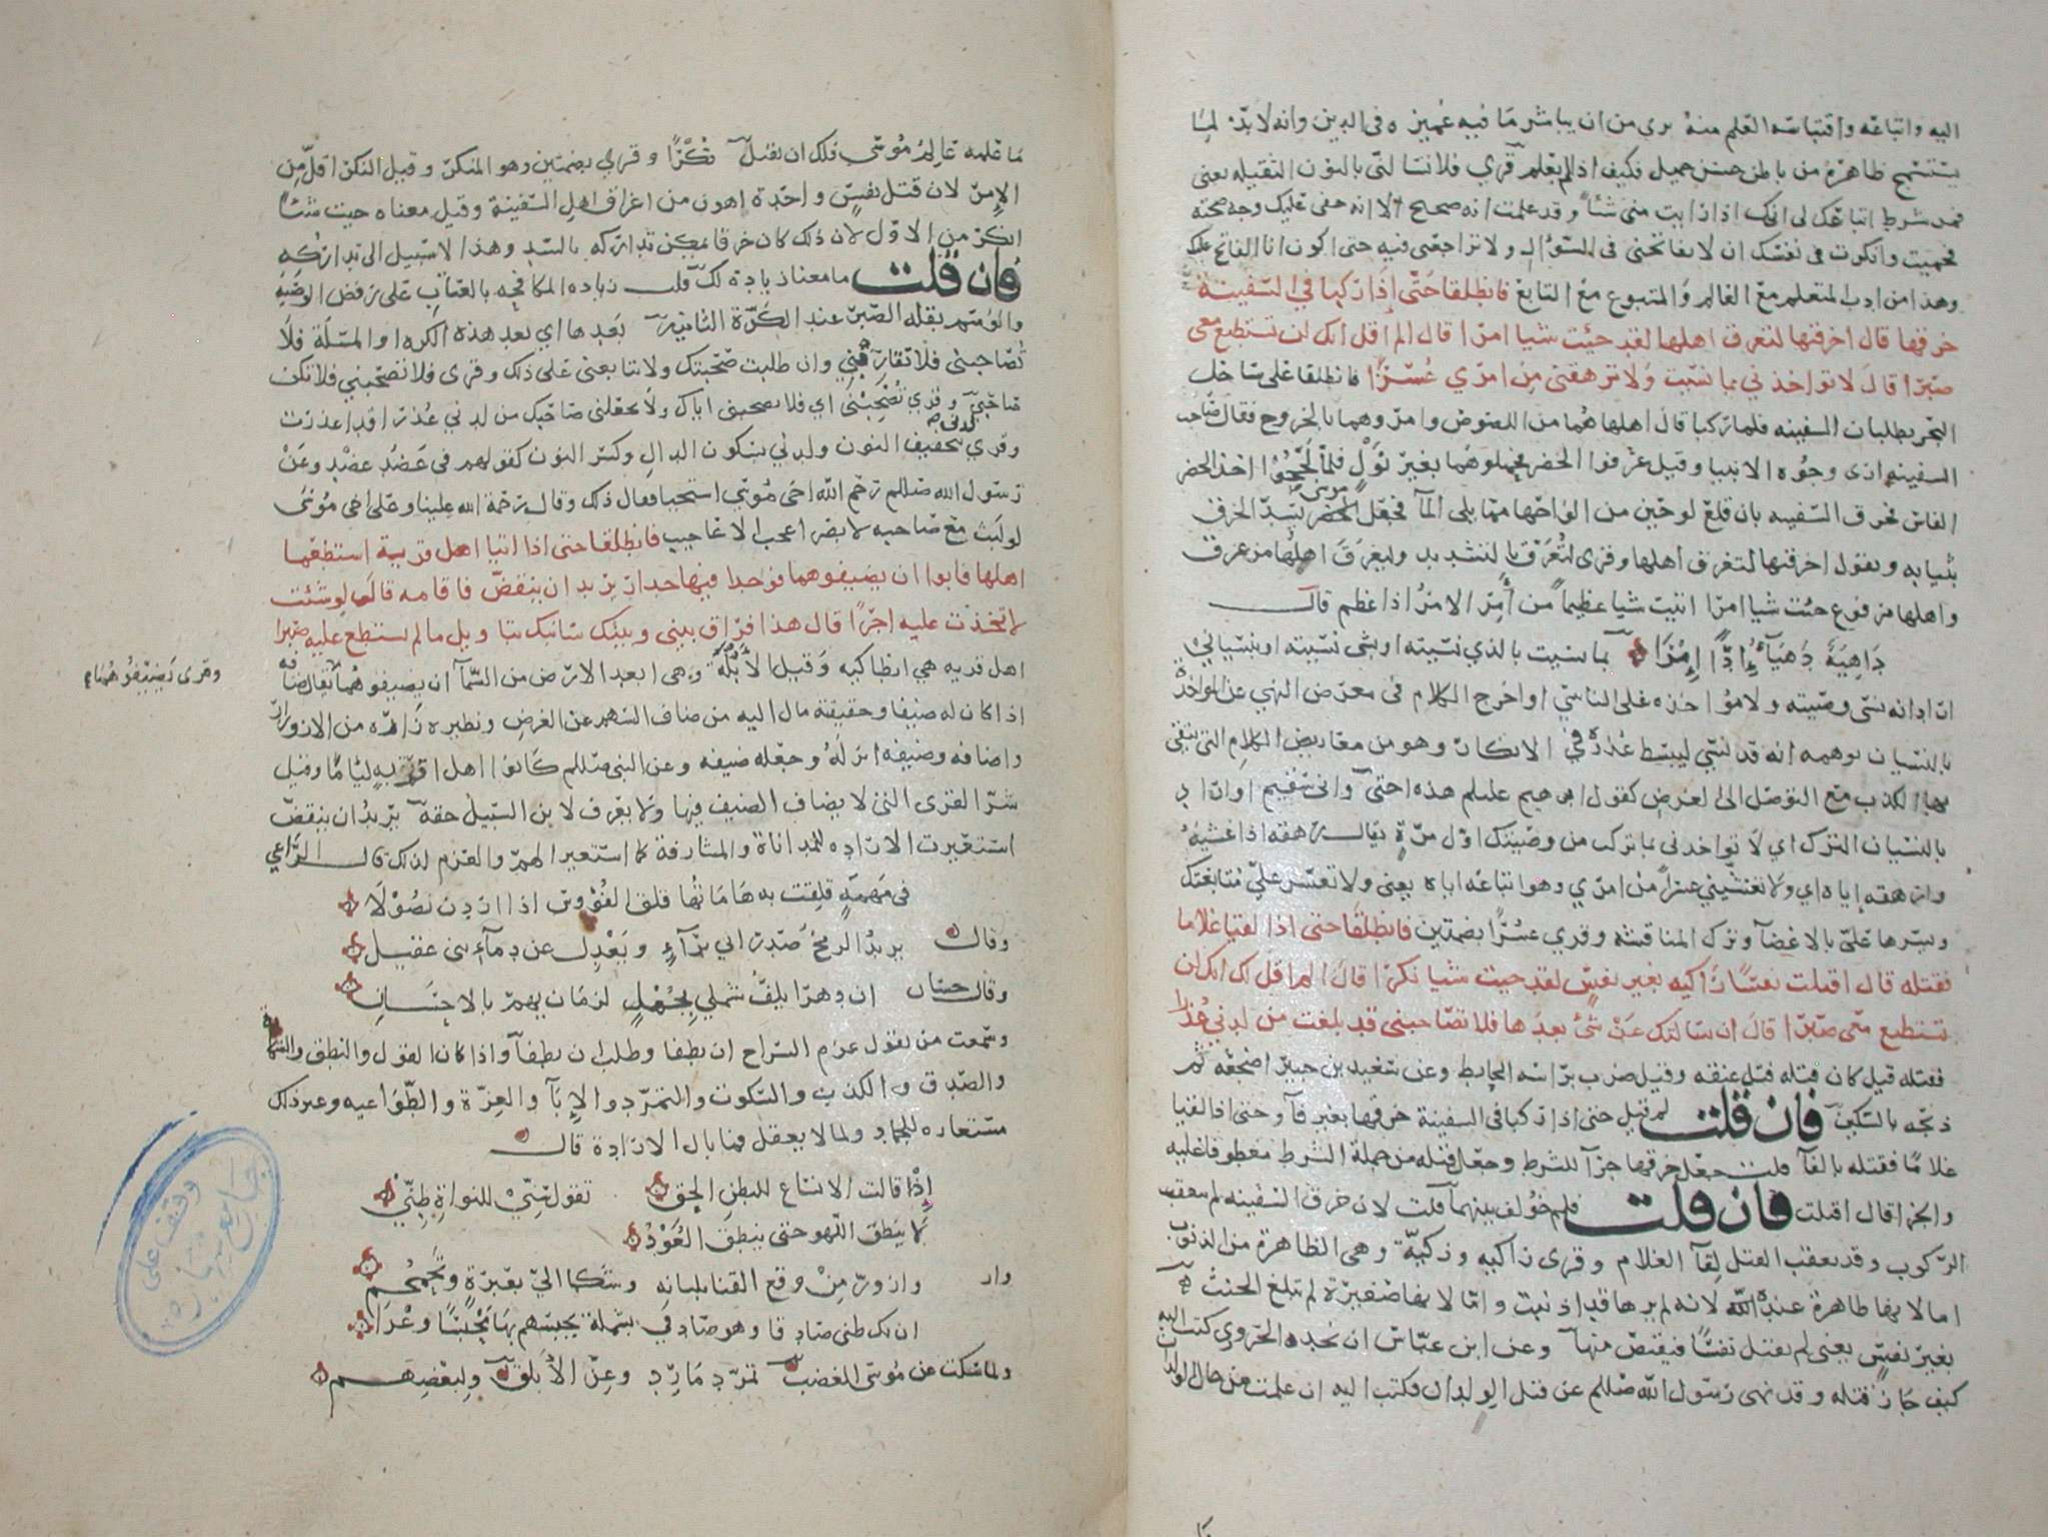 اليه واتباعه واقتباسه العلم منه بري من ان يباشر ما فيه غميزه في الدين وانه لا بد لما
يستسمج ظاهره من باطن حسن جميل فكيف اذا لم يعلم قري فلا تسالني بالنون الثقيله يعني
فمن شرط اتباعك لي انك اذا رايت مني شيا وقد علمت انه صحيح الا انه خفي عليك وجه صحته
فحميت وانكرت في نفسك ان لا تفاتحني في السؤال ولا تراجعني فيه حتى اكون انا الفاتح عليك
وهذا من ادب المتعلم مع العالم والمتبوع مع التابع فانطلقا حتى اذا ركبا في السفينة
خرقها قال اخرقتها لتغرق اهلها لقد جئت شيا امرا قال الم اقل انك لن تستطيع معي
صبرا قال لا تواخذني بما نسيت ولا ترهقني من امري عسرا فانطلقا على ساحل
البحر يطلبان السفينه فلما ركبا قال اهلها هما من اللصوص وامروهما بالخروج فقال صاحب
السفينه ارى وجوه الانبيا وقيل عرفوا الخضر فحملوهما بغير نول فلما لججوا اخذ الخضر
الفاس فخرق السفينه بان قلع لوحين من الواحها مما يلي المآ فجعل موسى يسد الخرق
بثيابه ويقول اخرقتها لتغرق اهلها وقرى لتغرق بالتشديد وليغرق اهلها من غرق
واهلها مرفوع جئت شيا امرا اتيت شيا عظيما من أمر الامر اذا عظم قال
داهية دهيآء إدا إمرا بما نسيت بالذي نسيته او بشى نسيته او بنسياني
اراد انه نسي وصيته ولا مؤاخذه على الناسي او اخرج الكلام في معرض النهي عن المواخذة
بالنسيان يوهمه انه قد نسي ليبسط عذره في الانكار وهو من معاريض الكلام التي يتقى
بها الكذب مع التوصل الى الغرض كقول ابرهيم عليلم هذه اختي واني سقيم او اراد
بالنسيان الترك اي لا تواخذني بما تركت من وصيتك اول مرة يقال رهقه اذا غشيه
وارهقه إياه اي ولا تغشيني عسرا من امري وهو اتباعه اياه يعني ولا تعسر علي متابعتك
ويسرها علي بالاغضآ وترك المناقشه وقري عسرا بضمتين فانطلقا حتى اذا لقيا غلاما
فقتله قال اقتلت نفسا زاكيه بغير نفس لقد جيت شيا نكرا قال الم اقل لك انك لن
تستطيع معي صبرا قال ان سالتك عن شئ بعدها فلا تصاحبني قد بلغت من لدني عذرا
فقتله قيل كان قتله فتل عنقه وقيل ضرب براسه الحايط وعن سعيد بن جبير اضجعه ثم
ذبحه بالسكين فان قلت لم قيل حتى اذا ركبا في السفينة خرقها بغير فآ وحتى اذا لقيا
غلاما فقتله بالفآ قلت جعل خرقها جزآ للشرط وجعل قتله من جملة الشرط معطوفا عليه
والجزا قال اقتلت فان قلت فلم خولف بينهما قلت لان خرق السفينه لم يتعقب
الركوب وقد تعقب القتل لقآ الغلام وقرى زاكيه وزكيه وهي الظاهرة من الذنوب
اما لانها طاهرة عنده لانه لم يرها قد اذنبت واما لانها صغيرة لم تبلغ الحنث
بغير نفس يعني لم يقتل نفسا فيقتص منها وعن ابن عباس ان نجده الحروري كتب اليه
كيف جاز قتله وقد نهى رسول الله صللم عن قتل الولدان فكتب اليه ان علمت من حال الولدان
ما علمه عالم موسى فلك ان تقتل نكرا وقرئ بضمتين وهو المنكر وقيل النكر اقل من
الإمر لان قتل نفس واحدة اهون من اغراق اهل السفينة وقيل معناه جيت شيا
انكر من الاول لان ذلك كان خرقا يمكن تداركه بالسد وهذا لا سبيل الى تداركه
فان قلت ما معنا زيادة لك قلت زياده المكافحه بالعتاب على رفض الوصيه
والوسم بقلة الصبر عند الكرة الثانيه بعدها اي بعد هذه الكره او المسئلة فلا
تصاحبني فلا تقاربني وان طلبت صحبتك ولا تتابعني على ذلك وقرى فلا تصحبني فلا تكن
صاحبي وقرى تصحبني اي فلا تصحبني اياك ولا تجعلني صاحبك من لدني عذرا قد اعذرت
وقري لدني بتخفيف النون ولدني بسكون الدال وكسر النون كقولهم في عضد عضد وعن
رسول الله صللم رحم الله اخي موسى استحيا فقال ذلك وقال رحمة الله علينا وعلى اخي موسى
لو لبث مع صاحبه لابصر اعجب الاعاجيب فانطلقا حتى اذا اتيا اهل قرية استطعما
اهلها فابوا ان يضيفوهما فوجدا فيها جدارا يريد ان ينقض فاقامه قال لو شئت
لاتخذت عليه اجرا قال هذا فراق بيني وبينك سانبئك بتاويل ما لم تستطع عليه صبرا
اهل قريه هي انطاكيه وقيل الأبلة وهي ابعد الارض من السمآ ان يضيفوهما يقال ضافه
وقرى يضيفوهما
اذا كان له ضيفا وحقيقته مال اليه من ضاف السهم عن الغرض ونظيره زاره من الازورار
واضافه وضيفه انزله وجعله ضيفه وعن النبي صللم كانوا اهل قرية لياما وقيل
شر القرى التي لا يضاف الضيف فيها ولا يعرف لابن السبيل حقه يريد ان ينقض
استعيرت الاراده للمداناة والمشارفة كما استعير الهم والعزم لذلك قال الراعي
في مهمه قلقت به هاماتها قلق الفؤوس اذا اردن نصولا
وقال يريد الرمح صدر ابي برآء ويعدل عن دمآء بني عقيل
وقال حسان ان دهرا يلف شملي بجمل لزمان يهم بالاحسان
وسمعت من يقول عزم السراج ان يطفا وطلب ان يطفآ واذا كان القول والنطق والشكاية
والصدق والكذب والسكوت والتمرد والإبآ والعزة والطواعيه وغير ذلك
مستعاره للجماد ولما لا يعقل فما بال الارادة قال
إذا قالت الانساع للبطن الحق تقول سني للنواة طني
لا ينطق اللهو حتى ينطق العود
وازور من وقع القنا بلبانه وشكا الي بعبرة وتحمحم
ان يك ظني صادقا وهو صادقي بشملة يحبسهم بها محبسا وعرا
ولما سكت عن موسى الغضب تمرد مارد وعز الأبلق ولبعضهم
وقف على
جامع شهاره